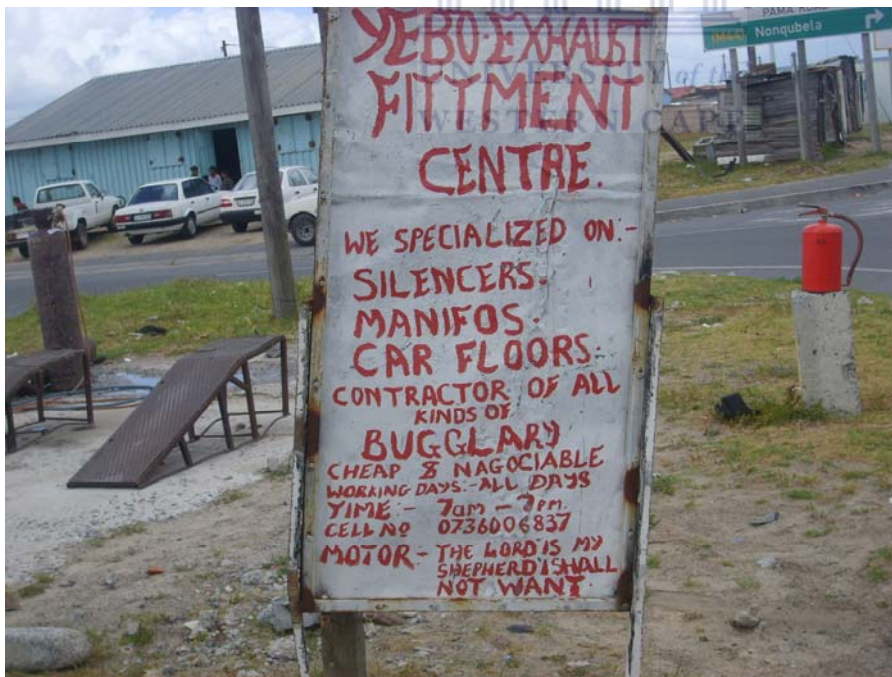 YEBO-EXHAUST
FITTMENT
CENTRE.
WE SPECIALIZED ON:-
SILENCERS.
MANIFOS.
CAR FLOORS.
CONTRACTOR OF ALL
KINDS OF
BUGGLARY
CHEAP & NAGOCIABLE
WORKING DAYS:- ALL DAYS
TIME:- 7am - 7pm.
CELL NO 0736006837
MOTOR:- THE LORD IS MY
SHEPHERD I SHALL
NOT WANT.
(M44) Nonqubela
UNIVERSITY of the
WESTERN CAPE